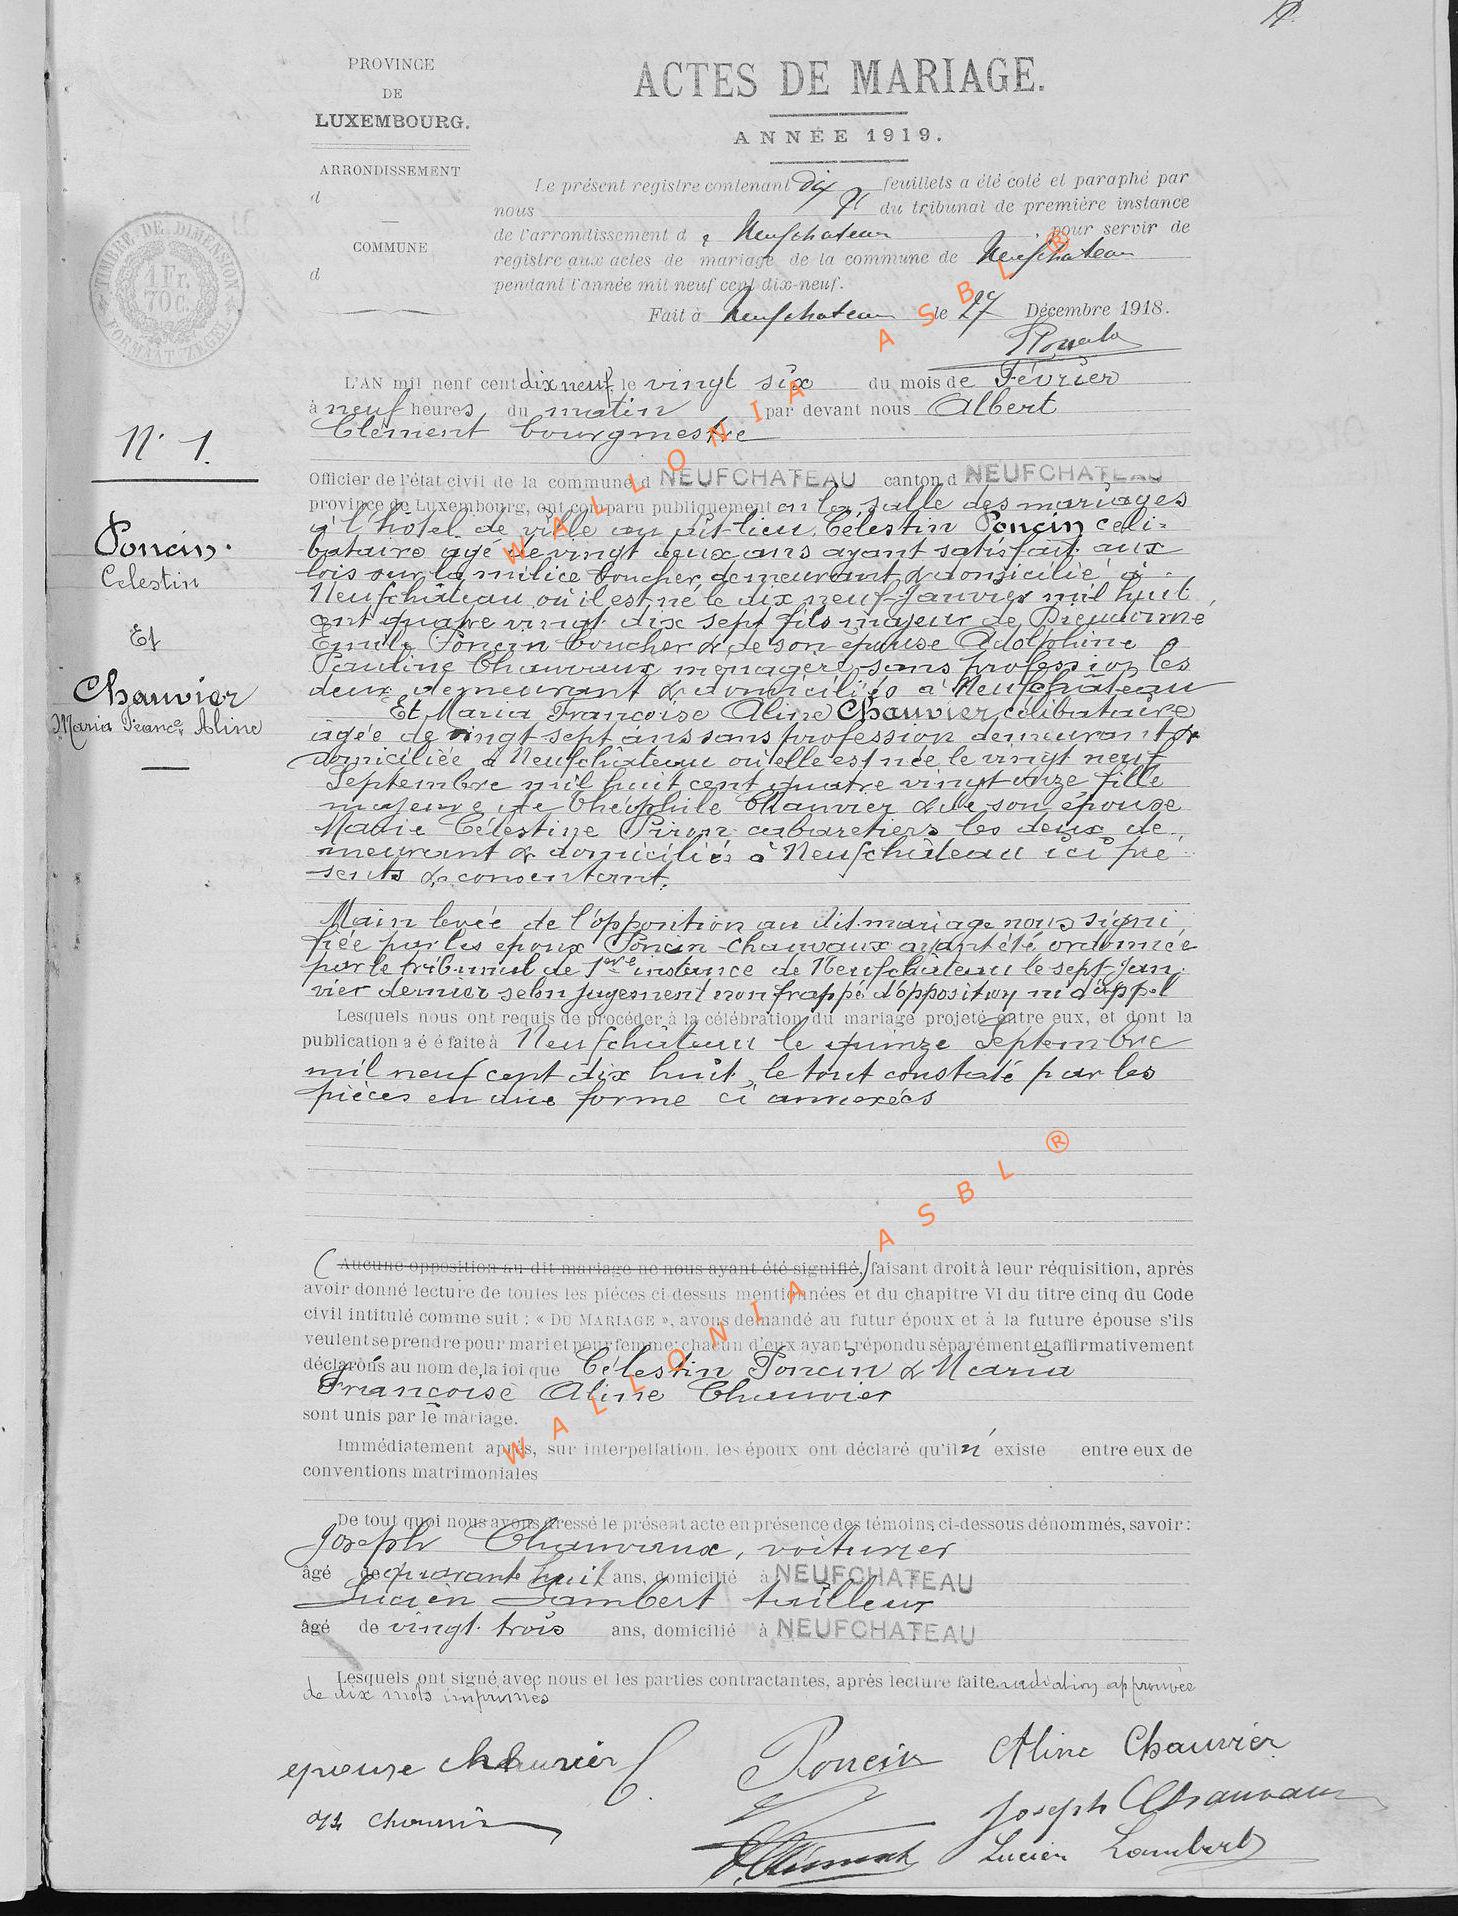 PROVINCE
DE
LUXEMBOURG.
ARRONDISSEMENT
d
COMMUNE
d
TIMBRE DE DIMENSION
1 Fr.
70 C.
FORMAAT ZEGEL
ACTES DE MARIAGE.
ANNÉE 1919.
Le présent registre contenant dix feuillets a été coté et paraphé par
nous du tribunal de première instance
de l'arrondissement d e Neufchateau pour servir de
registre aux actes de mariage de la commune de Neufchateau
pendant l'année mil neuf cent dix-neuf.
Fait à Neufchateau le 27 Décembre 1918.
L'AN mil neuf cent dix neuf le vingt six du mois de Février
à neuf heures du matin par devant nous Albert
Clément bourgmestre
Officier de l'état civil de la commune d NEUFCHATEAU canton d NEUFCHATEAU
province de Luxembourg, ont comparu publiquement en la salle des mariages
à l'hôtel de ville au dit lieu, Célestin Poncin céli=
bataire agé de vingt deux ans ayant satisfait aux
lois sur la milice boucher, demeurant & domicilié à
Neufchâteau où il est né le dix neuf Janvier mil huit
cent quatre vingt dix sept fils majeur de Dieudonné
Emile Poncin boucher & de son épouse Adolphine
Pauline Chauvaux ménagère sans profession les
deux demeurant & domiciliés à Neufchâteau
Et Maria Françoise Aline Chauvier célibataire
âgée de vingt-sept ans sans profession demeurant &
domiciliée à Neufchâteau où elle est née le vingt neuf
Septembre mil huit cent quatre vingt onze fille
majeure de Théophile Chauvier & de son épouse
Marie Célestine Piron cabaretiers les deux de
meurant & domiciliés à Neufchâteau ici pré
sents & consentant.
Main levée de l'opposition au dit mariage nous signi
fiée par les époux Poncin-Chauvaux ayant été ordonnée
par le tribunal de 1ère instance de Neufchâteau le sept Jan
vier dernier selon jugement non frappé d'opposition ni d'appel
Lesquels nous ont requis de procéder à la célébration du mariage projeté entre eux, et dont la
publication a é é faite à Neufchâteau le quinze Septembre
mil neuf cent dix huit, le tout constaté par les
pièces en due forme ci annexées
(Aucune opposition au dit mariage ne nous ayant été signifié,) faisant droit à leur réquisition, après
avoir donné lecture de toutes les pièces ci dessus mentionnées et du chapitre VI du titre cinq du Code
civil intitulé comme suit : « DU MARIAGE », avons demandé au futur époux et à la future épouse s'ils
veulent se prendre pour mari et pour femme; chacun d'eux ayant répondu séparément et affirmativement
déclarons au nom de la loi que Célestin Poncin & Maria
Françoise Aline Chauvier
sont unis par le mariage.
Immédiatement après, sur interpellation, les époux ont déclaré qu'il n'existe entre eux de
conventions matrimoniales
De tout quoi nous avons dressé le présent acte en présence des témoins ci-dessous dénommés, savoir :
Joseph Chauvaux, voiturier
âgé de quarante huit ans, domicilié à NEUFCHATEAU
Lucien Lambert tailleur
âgé de vingt trois ans, domicilié à NEUFCHATEAU
Lesquels ont signé avec nous et les parties contractantes, après lecture faite radiation approuvée
de dix mots imprimés
epouse chauvier C. Poncin Aline Chauvier
Chauvier Joseph Chauvaux
A. Clément Lucien Lambert
N° 1.
Poncin.
Celestin
Et
Chauvier
Maria Franc.e Aline
WALLONIA ASBL ®
WALLONIA ASBL ®